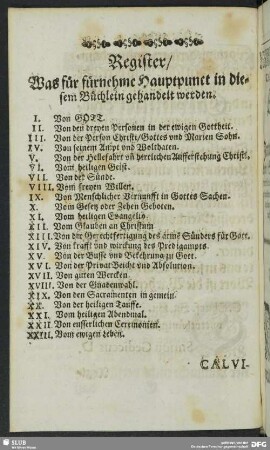 Register/
Was für fürnehme Hauptpunct in die-
sem Büchlein gehandelt werden.
I. Von GOTT.
II. Von den dreyen Personen in der ewigen Gottheit.
III. Von der Person Christi/Gottes vnd Marien Sohn.
IV. Von seinem Ampt vnd Wolthaten.
V. Von der Hellefahrt vñ herrlichen Aufferstehung Christi.
VI. Vom heiligen Geist.
VII. Von der Sünde.
VIII. Vom freyen Willen.
IX. Von Menschlicher Vernunfft in Gottes Sachen.
X. Vom Gesetz oder Zehen Geboten.
XI. Vom heiligen Evangelio.
XII. Vom Glauben an Christum
XIII. Von die Gerechtfertigung des arms Sünders für Gott.
XIV. Von krafft vnd wirckung des Predigampts.
XV. Von der Busse vnd Bekehrung zu Gott.
XVI. Von der Privat Beicht vnd Absolution.
XVII. Von guten Wercken.
XVIII. Von der Gnadenwahl.
XIX. Von den Sacramenten in gemein.
XX. Von der heiligen Tauffe.
XXI. Vom heiligen Abendmal.
XXII. Von eusserlichen Ceremonien.
XXIII. Vom ewigen Leben.
CALVI-
SLUB